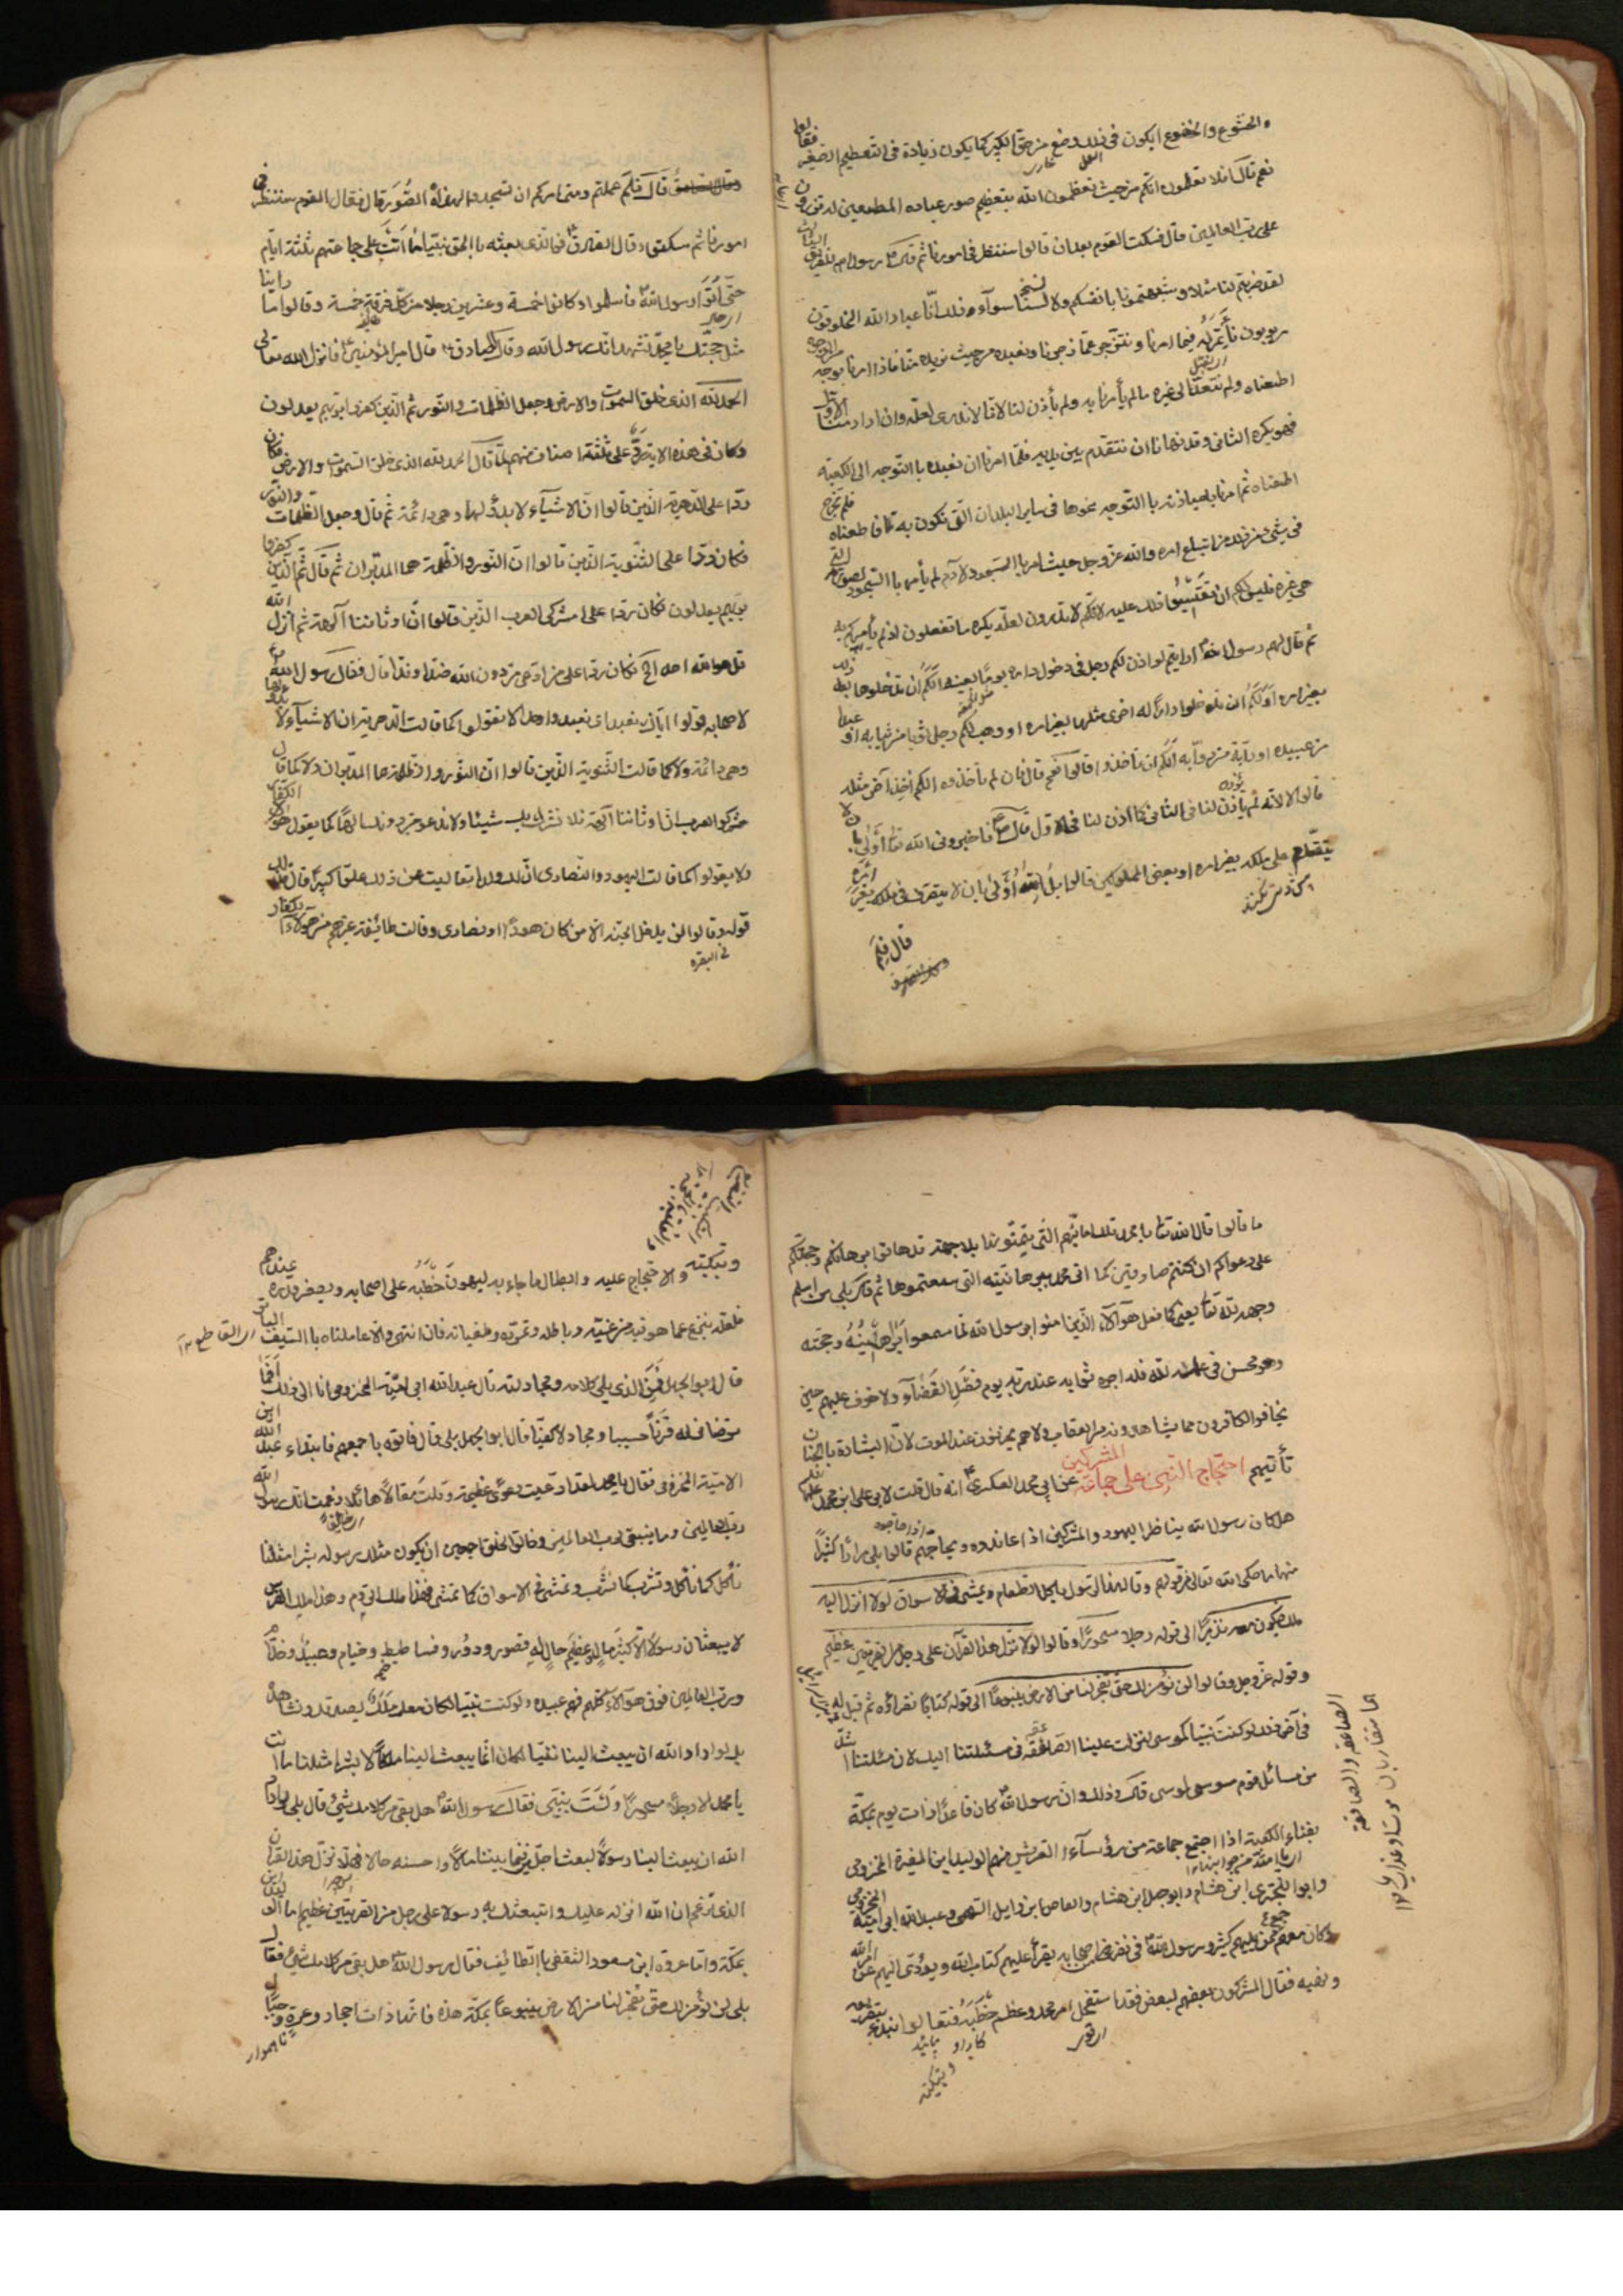 والخشوع والخضوع ايكون في ذلك وضع من حق الكبير كما يكون زيادة في التعظيم الصغير فقالوا
نعم قال افلا تعلمون انكم من حيث تعظمون الله بتعظيم صور عباده المطيعين له تزرون
على رب العالمين قال فسكت القوم بعد ان قالوا سننظر في امورنا ثم قال رسول الله للفريق الثالث
لقد ضربتم لنا مثلا وشبهتمونا بانفسكم ولا لسنا سوآء وذلك انا عباد الله مخلوقون
مربوبون نأتمر له فيما امرنا وننزجر عما زجرنا ونعبده من حيث يريده منا فاذا امرنا بوجه من الوجوه
اطعناه ولم نتعد الى غيره مما لم يأمرنا به ولم يأذن لنا لانا لا ندري لعله وان اراد منا الاول
فهو يكره الثاني وقد نهانا ان نتقدم بين يديه فلما امرنا ان نعبده باالتوجه الى الكعبة
اطعناه ثم امرنا بعبادته باالتوجه نحوها في ساير البلدان التي نكون بها فاطعناه فلم نخرج
في شيئ من ذلك من اتباع امره والله عز وجل حيث امر باالسجود لادم لم يأمر باالسجود لصورته التي
هي غيره فليس لكم ان تقيسوا ذلك عليه لانكم لا تدرون لعله يكره ما تفعلون اذ لم يأمركم به
ثم قال لهم رسول الله ارايتم لو اذن لكم رجل في دخول داره يوما بعينه الكم ان تدخلوها بعد ذلك
بغير امره او لكم ان تدخلوا دارا له اخرى مثلها بغير امره او وهب لكم رجل ثوبا من ثيابه او عبدا
من عبيده او دابة من دوابه الكم ان تأخذوا قالوا نعم قال فان لم تأخذوه الكم اخذ آخر مثله
قالوا لا لانه لم يأذن لنا في الثاني كما اذن لنا في الاول قال فاخبروني الله تعا اولى بان لا
يتقدم على ملكه بغير امره او بعض المملوكين قالوا بل الله اولى بان لا يتصرف في ملكه بغير امره
قال فلم
قال فلم فعلتم ومتى امركم ان تسجدوا لهذه الصور قال فقال القوم سننظر في
امورنا ثم سكتوا وقال الصادق فو الذي بعثه باالحق نبيا ما اتت على جماعتهم ثلثة ايام
حتى أتوا رسول الله فاسلموا وكانوا خمسة وعشرين رجلا من كل فرقة خمسة وقالوا ما راينا
مثل حجتك يا محمد نشهد انك رسول الله وقال الصادق قال امير المؤمنين فانزل الله تعالى
الحمد لله الذي خلق السموات والارض وجعل الظلمات والنور ثم الذين كفروا بربهم يعدلون
وكان في هذه الاية رد على ثلثة اصناف منهم لما قال الحمد لله الذي خلق السموات والارض فكان
ردا على الدهرية الذين قالوا ان الاشيآء لا بدؤ لها وهي دائمة ثم قال وجعل الظلمات والنور
فكان ردا على الثنوية الذين قالوا ان النور والظلمة هما المدبران ثم قال ثم الذين كفروا
بربهم يعدلون فكان ردا على مشركي العرب الذين قالوا ان اوثاننا آلهة ثم انزل الله
قل هو الله احد الخ فكان ردا على من ادعى من دون الله ضدا وندا قال فقال رسول الله
لاصحابه قولوا اياك نعبد اي نعبد واحدا لا نقول كما قالت الدهرية ان الاشيآء لا بدؤ لها
وهي دائمة ولا كما قالت الثنوية الذين قالوا ان النور والظلمة هما المدبران ولا كما قال
مشركو العرب ان اوثاننا آلهة فلا نشرك بك شيئا ولا ندعو من دونك الها كما يقول هؤلاء الكفار
ولا نقول كما قالت اليهود والنصارى ان لك ولدا تعاليت عن ذلك علوا كبيرا قال فذلك
قوله وقالوا لن يدخل الجنة الا من كان هودا او نصارى وقالت طائفة غيرهم من هؤلاء الكفار
في البقره
ما قالوا قال الله تعا يا محمد تلك امانيهم التي يتمنونها بلا حجة قل هاتوا برهانكم وحجتكم
على دعواكم ان كنتم صادقين كما اتى محمد ببرهانيته التي سمعتموها ثم قال بلى من اسلم
وجهه لله تعا يعني كما فعل هؤلآء الذين امنوا برسول الله لما سمعوا براهينه وحجته
وهو محسن في عمله لله فله اجره ثوابه عند ربه يوم فصل القضآء ولا خوف عليهم حين
يخاف الكافرون مما يشاهدونه من العقاب ولا هم يحزنون عند الموت لان البشارة باالجنان
تأتيهم احتجاج النبي على جماعة المشركين عن ابي محمد العسكري انه قال قلت لابي علي ابن محمد
هل كان رسول الله يناظر اليهود والمشركين اذا عاندوه ويحاجهم قالوا بلى مرارا كثيرا
منها ما حكى الله تعالى من قولهم وقالوا مال هذا الرسول يأكل الطعام ويمشي في الاسواق لولا انزل اليه
ملك فيكون معه نذيرا الى قوله رجلا مسحورا وقالوا لولا نزل هذا القرآن على رجل من القريتين عظيم
وقوله عز وجل وقالوا لن نؤمن لك حتى تفجر لنا من الارض ينبوعا الى قوله كتابا نقرأؤه ثم قيل له
في آخر ذلك لو كنت نبيا كموسى لنزلت علينا الصاعقة في مسئلتنا اليك لان مسئلتنا اشد
من مسائل قوم موسى لموسى قال وذلك وان رسول الله كان قاعدا ذات يوم بمكة
بفناء الكعبة اذا اجتمع جماعة من رؤسآء القريش منهم الوليد ابن المغيرة المخزومي
وابو البختري ابن هشام وابو جهل ابن هشام والعاص ابن وايل السهمي وعبد الله ابي امية المخزومي
وكان معهم جمع ممن يليهم كثير ورسول الله في نفر من اصحابه يقرأ عليهم كتاب الله ويؤدي اليهم عن الله امره
ونهيه فقال المشركون بعضهم لبعض لقد استفحل امر محمد وعظم خطبه فتعالوا نبدء بتقريعه
وتبكيته
وتبكيته والاحتجاج عليه وابطال ما جاء به ليهون خطبه على اصحابه ويصغر قدره عندهم
فلعله ينزع عما هو فيه من غيه وباطله وتمرده وطغيانه فان انتهى والا عاملناه باالسيف الباتر
قال ابو الجهل فمن الذي يلي كلامه ومجادلته قال عبد الله ابي امية المخزومي انا الى ذلك افما
ترضاني له قرنا حسيبا ومجادلا كفيا قال ابو الجهل بلى قال فاتوه باجمعهم فابتداء عبد الله ابن
الامية المخزومي فقال يا محمد لقد ادعيت دعوى عظيمة وقلت مقالا هائلا زعمت انك رسول الله
رب العالمين وما ينبغي لرب العالمين وخالق الخلق اجمعين ان يكون مثلك رسوله بشرا مثلنا
تأكل كما نأكل وتشرب كما نشرب وتمشي في الاسواق كما نمشي فهذا ملك الروم وهذا ملك الفرس
لا يبعثان رسولا الا كثير مال عظيم حال له قصور ودور وفساطيط وخيام وعبيد وخدام
ورب العالمين فوق هؤلاء كلهم فهم عبيده ولو كنت نبيا لكان معك ملك يصدقك ونشاهده
بل لو اراد الله ان يبعث الينا نبيا لكان انما يبعث الينا ملكا لا بشرا مثلنا ما انت
يا محمد الا رجلا مسحورا ولست بنبي فقال رسول الله هل بقي من كلامك شيئ قال بلى لو اراد
الله ان يبعث الينا رسولا لبعث اجل من فيما بيننا مالا واحسنه حالا فهلا نزل هذا القرآن
الذي تزعم ان الله انزله عليك وابتعثك به رسولا على رجل من القريتين عظيم اما الوليد
بمكة واما عروة ابن مسعود الثقفي باالطائف فقال رسول الله هل بقي من كلامك شيئ فقال
بلى لن نؤمن لك حتى تفجر لنا من الارض ينبوعا بمكة هذه فانها ذات احجار وعرة وجبال
ناهموار